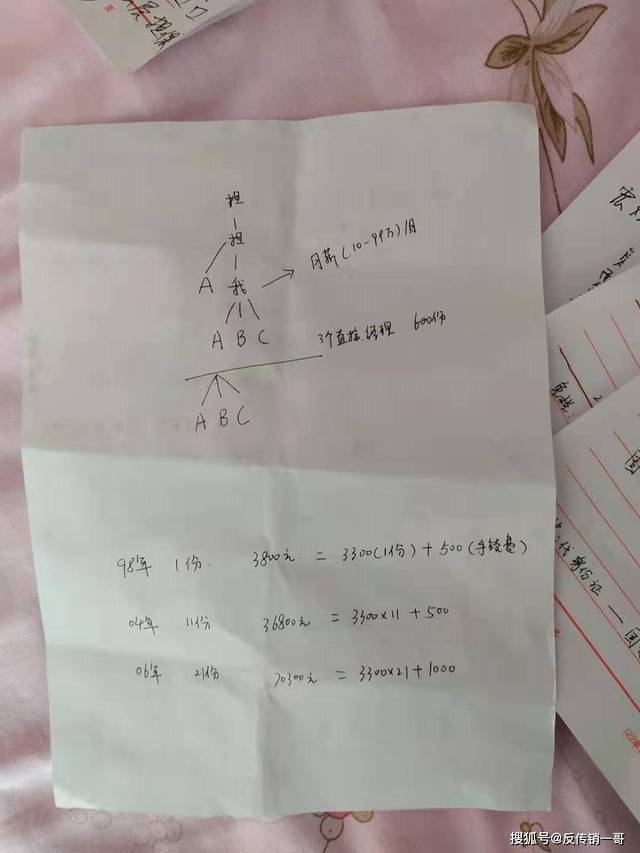 担
担
A 我 → 月薪(10-99万)/月
A B C 3个直接经理 600份
A B C
98年 1份. 3800元. = 3300(1份)+500(手续费)
04年 11份 36800元 = 3300×11+500
06年 21份 70300元 = 3300×21+1000
代身份证一
搜狐号@反传销一哥